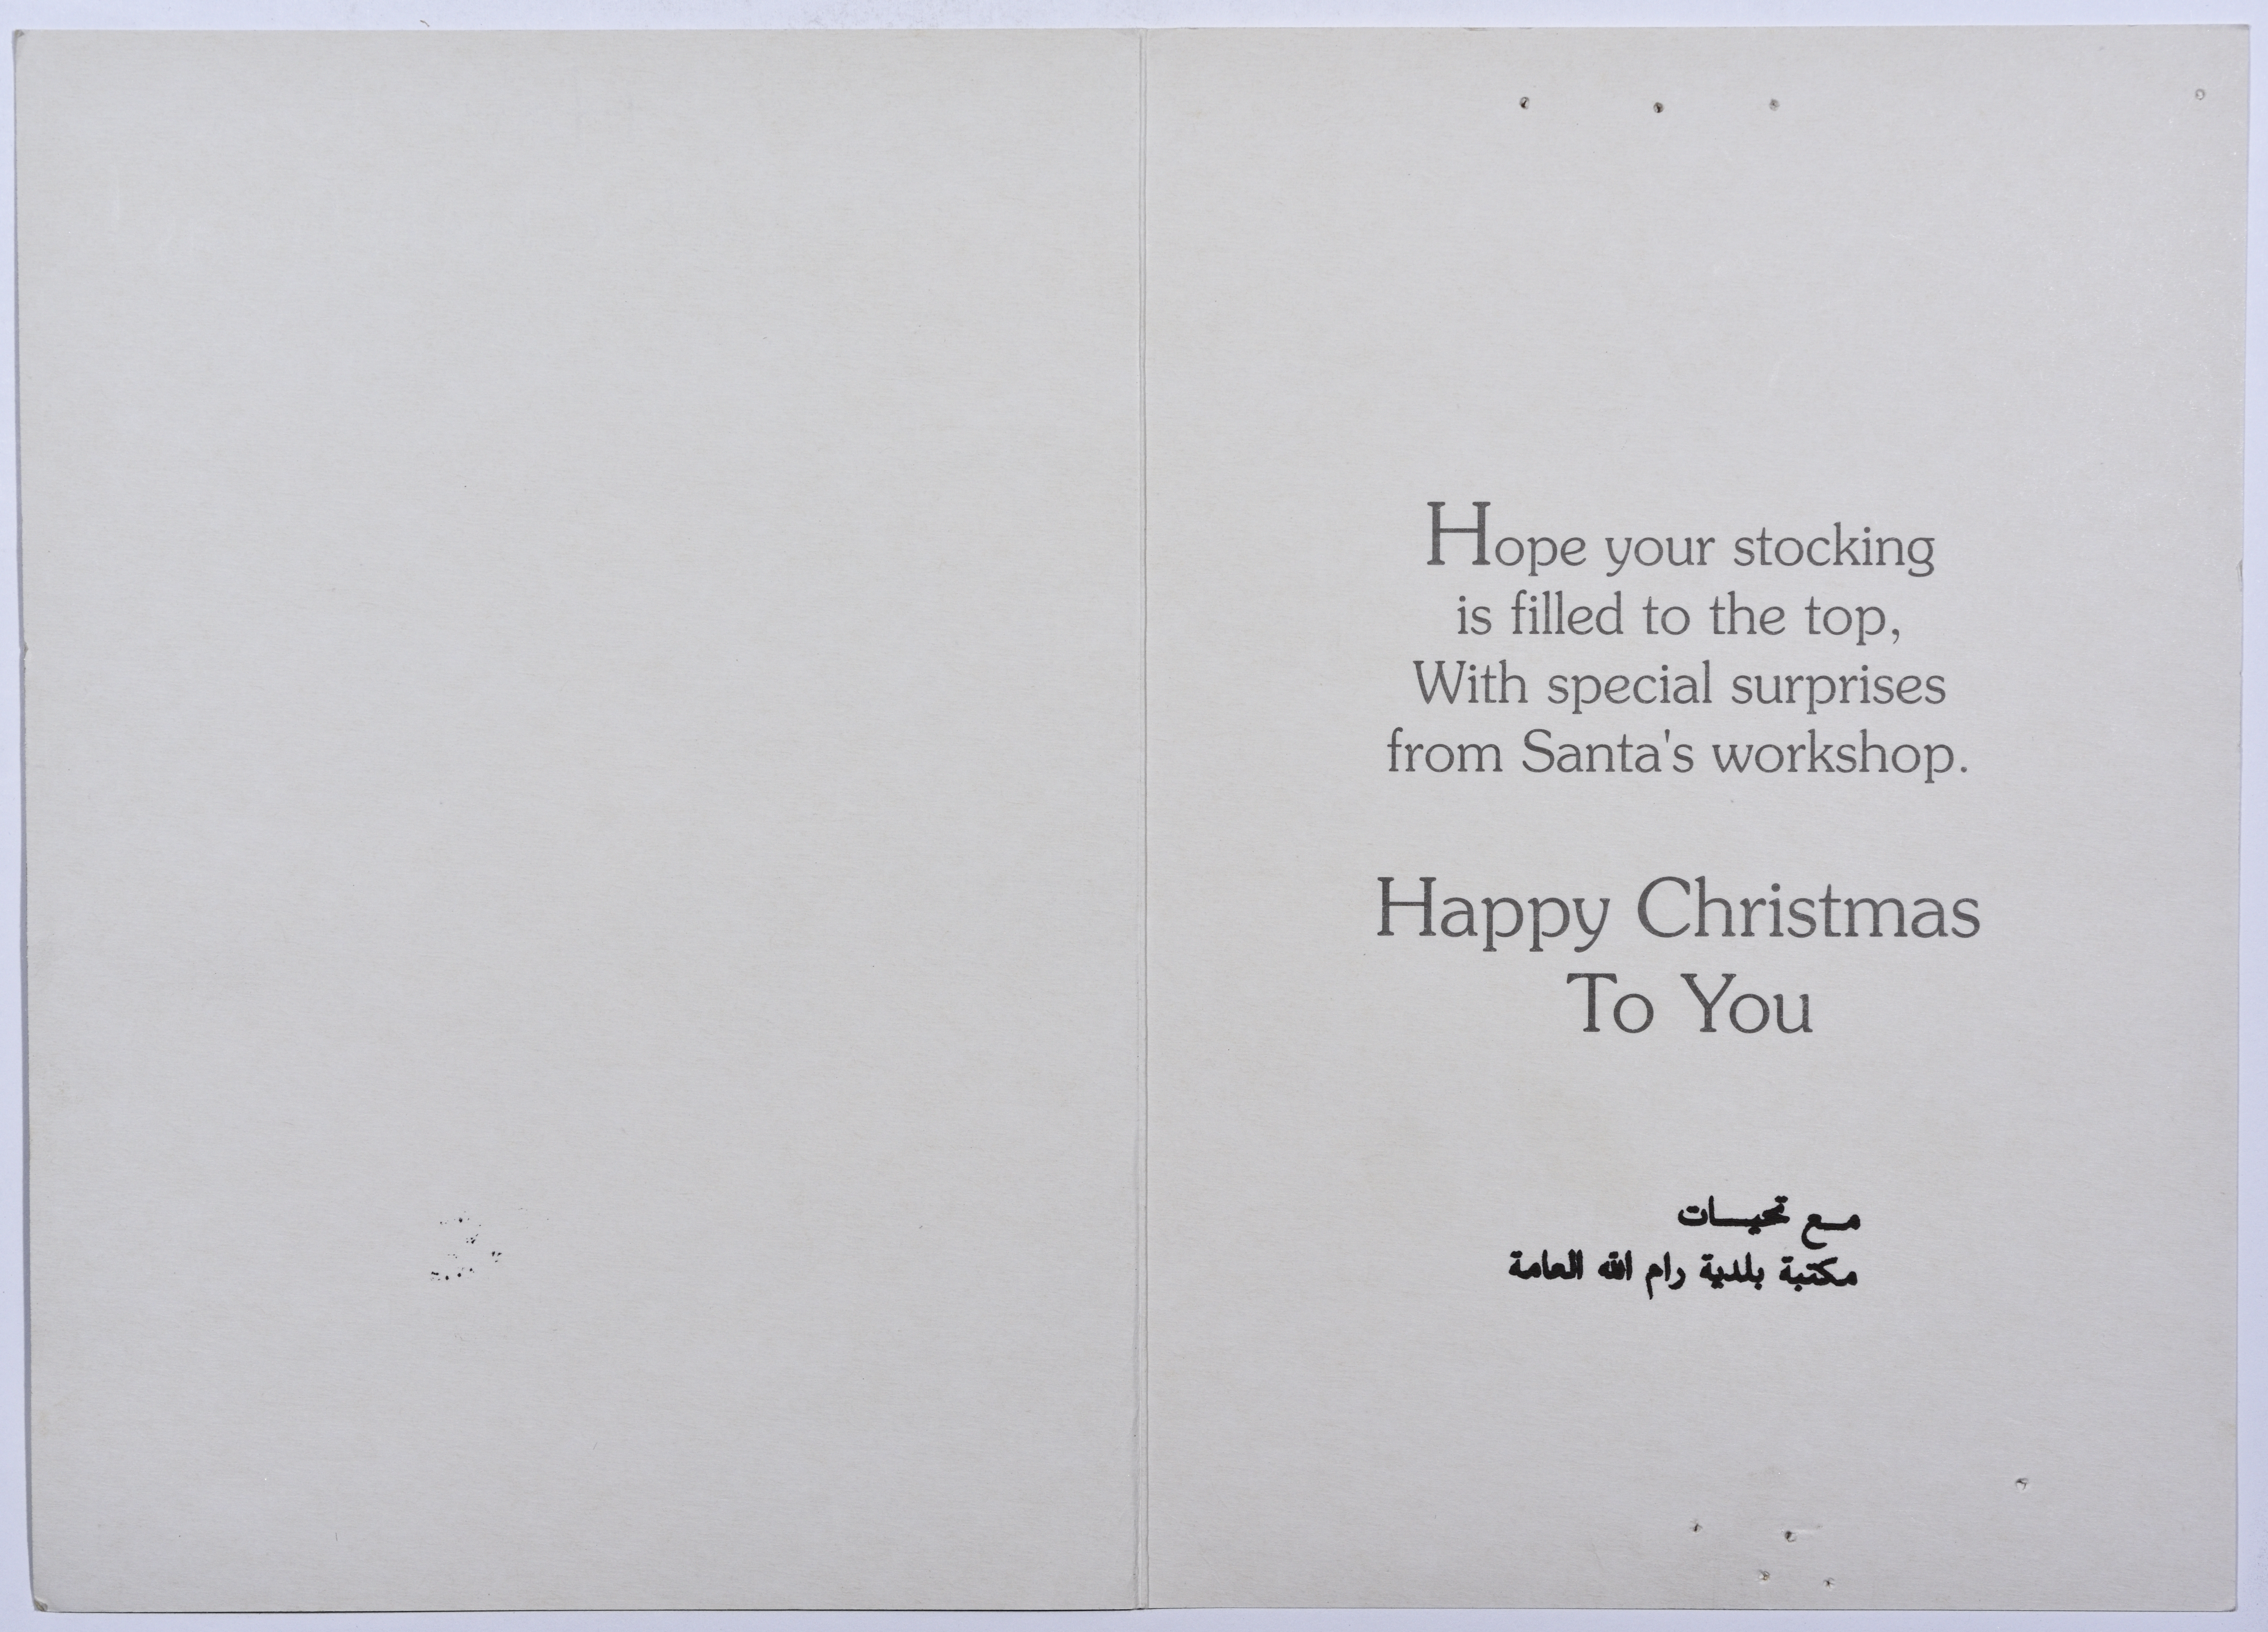 Hope your stocking
is filled to the top,
With special surprises
from Santa's workshop.
Happy Christmas
To You
مع تحيات
مكتبة بلدية رام الله العامة